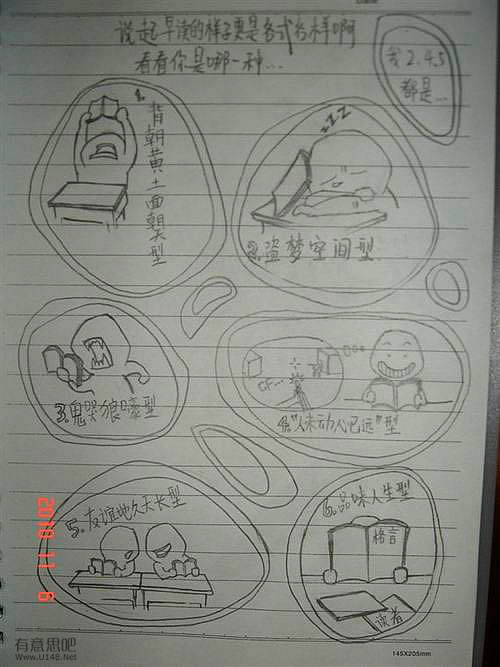 说起早读的样子真是各式各样啊
看看你是哪一种...
我2.4.5
都是...
1.背朝黄土面朝天型
zZZ
2.盗梦空间型
3.鬼哭狼嚎型
CF...
4."人未动心已远"型
5.友谊地久天长型
6.品味人生型
格言
读者
2010 11 6
有意思吧
www.U148.Net
145X205mm